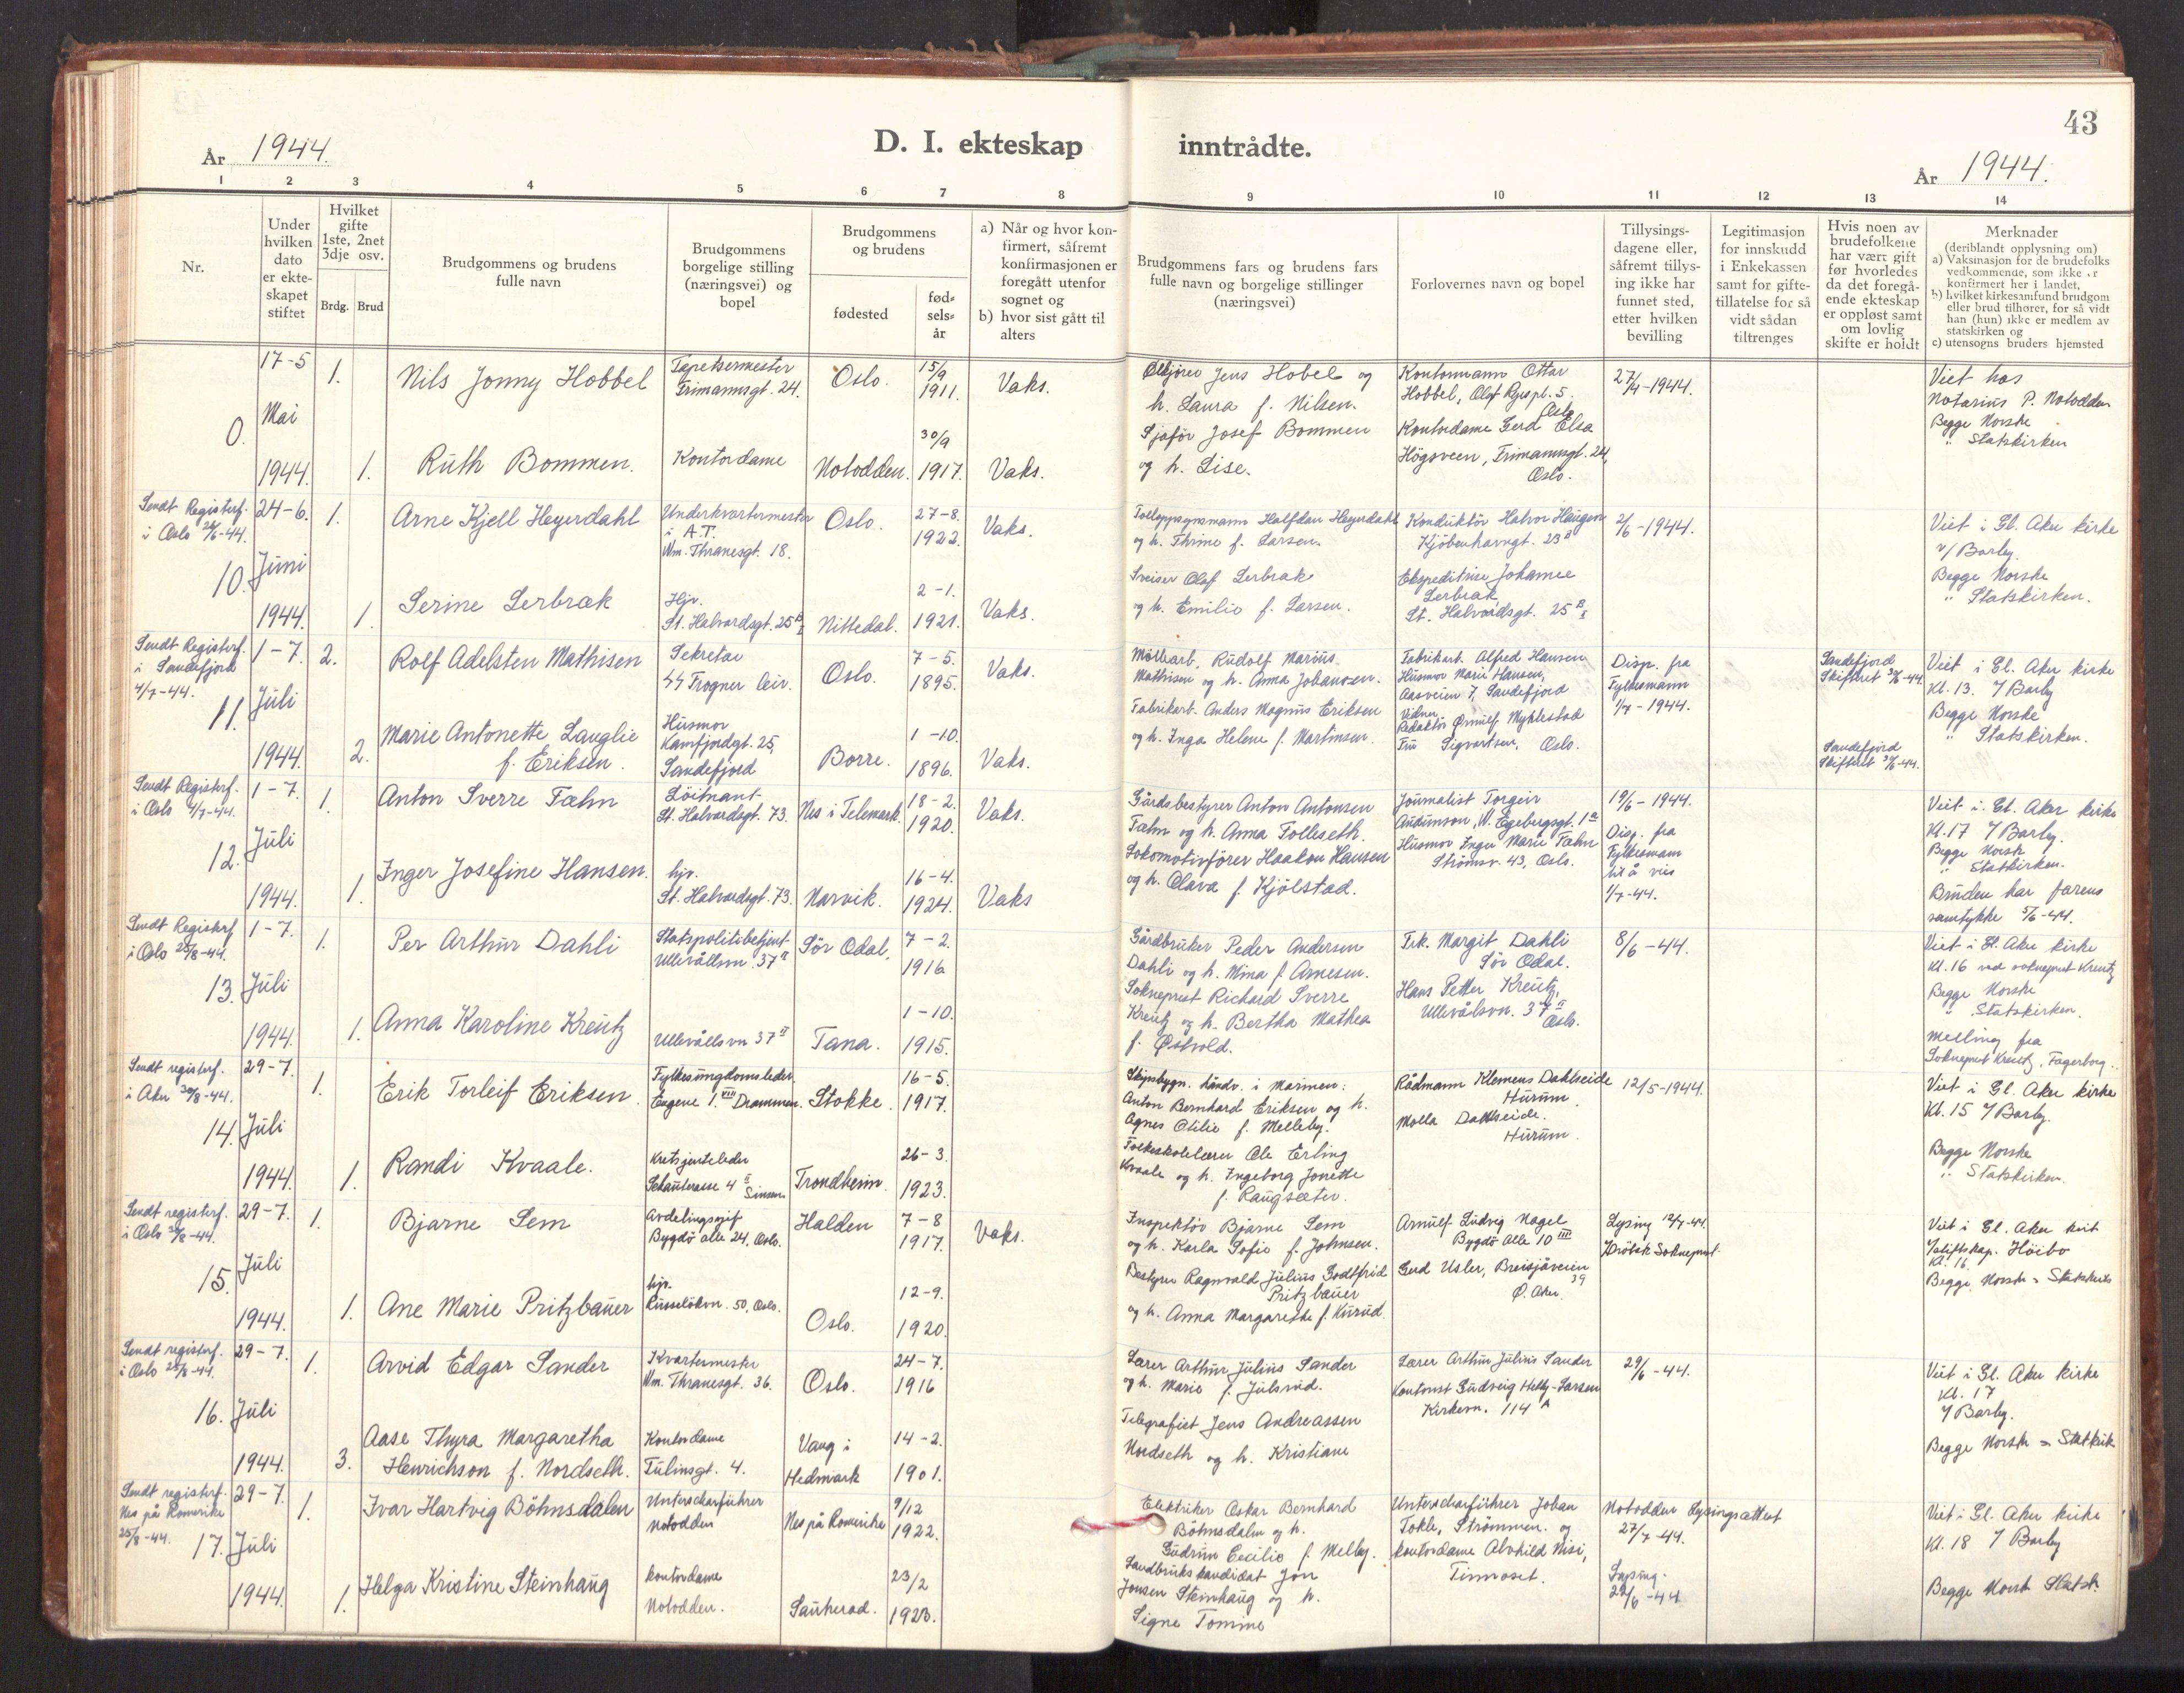 43
År 1944.
D. I. ekteskap inntrådte.
År 1944.
1 2 3 4 5 6 7 8 9 10 11 12 13 14
Nr.
Under hvilken dato er ekte- skapet stiftet
Hvilket gifte 1ste, 2net 3dje osv.
Brdg. Brud
Brudgommens og brudens fulle navn
Brudgommens borgelige stilling (næringsvei) og bopel
Brudgommens og brudens
fødested
fød- sels- år
a) Når og hvor kon- firmert, såfremt konfirmasjonen er foregått utenfor sognet og
b) hvor sist gått til alters
Brudgommens fars og brudens fars fulle navn og borgelige stillinger (næringsvei)
Forlovernes navn og bopel
Tillysings- dagene eller, såfremt tillys- ing ikke har funnet sted, etter hvilken bevilling
Legitimasjon for innskudd i Enkekassen samt for gifte- tillatelse for så vidt sådan tiltrenges
Hvis noen av brudefolkene har vært gift før hvorledes da det foregå- ende ekteskap er oppløst samt om lovlig skifte er holdt
Merknader
(deriblandt opplysning om)
a) Vaksinasjon for de brudefolks vedkommende, som ikke er konfirmert her i landet,
b) hvilket kirkesamfund brudgom eller brud tilhører, for så vidt han (hun) ikke er medlem av statskirken og
c) utensogns bruders hjemsted
0.
17-5
Mai
1944.
1.
Nils Jonny Hobbel
Tapetsermester
Frimannsgt. 24.
Oslo.
15/9
1911.
Vaks.
Jens Hobel og
h. Laura f. Nilsen.
Kontormann Ottar
Hobbel, Olaf Ryespl. 5.
Oslo
27/4-1944.
Viet hos
Notarius P. Notodden
Begge Norske
" Statskirken
1.
Ruth Bommen.
Kontordame
Notodden.
30/9
1917.
Vaks.
Sjåfør Josef Bommen
og h. Lise.
Kontordame Gerd Elsa
Högsveen, Frimannsgt. 24,
Oslo.
Sendt Registerf.
i Oslo 26/6-44.
10.
24-6.
Juni
1944.
1.
Arne Kjell Heyerdahl
Underkvartermester
i A.T.
Wm. Thranesgt. 18.
Oslo.
27-8.
1922.
Vaks.
Tolloppsynsmann Halfdan Heyerdahl
og h. Thrine f. Larsen.
Konduktör Halvor Haugen
Kjöbenhavngt. 23 B
2/6-1944.
Viet i Gl. Aker kirke
v/ Barby.
Begge Norske
" Statskirken.
1.
Serine Lerbrak
Hjv.
St. Halvardsgt. 25 B I
Nittedal.
2-1.
1921.
Vaks.
Sveiser Olaf Lerbrak
og h. Emilie f. Larsen.
Ekspeditrise Johanne
Lerbrak
St. Halvardsgt. 25 B I
Sendt Registerf.
i Sandefjord
4/7-44.
11.
1-7.
Juli
1944.
2.
Rolf Adelsten Mathisen
Sekretær
44 Frogner
Oslo.
7-5.
1895.
Vaks.
Möllearb. Rudolf Marius
Mathisen og h. Anna Johansen.
Fabrikarb. Alfred Hansen
Husmor Marie Hansen,
Aasveien 7, Sandefjord
Disp. fra
Fylkesmann
1/7-1944.
Sandefjord
Skifterett 30/6-44.
Viet i Gl. Aker kirke
Kl. 13. v/ Barby
Begge Norske
" Statskirken.
2.
Marie Antonette Lauglie
f. Eriksen.
Husmor
Kamfjordgt. 25,
Sandefjord
Borre.
1-10.
1896.
Vaks.
Fabrikarb. Anders Magnus Eriksen
og h. Inga Helene f. Martinsen.
Vidner
Redaktör Ørnulf Myklestad
Fru Sigvartsen, Oslo.
Sandefjord
Skifterett 30/6-44.
Sendt Registerf.
i Oslo 4/7-44.
12.
1-7.
Juli
1944.
1.
Anton Sverre Fæhn
Löitnant
St. Halvardsgt. 73.
Nes i Telemark.
18-2.
1920.
Vaks.
Gårdsbestyrer Anton Antonsen
Fæhn og h. Anna Folleseth.
Journalist Torgeir
Audunson, W. Egebergsgt. 1 a
Husmor Inger Marie Fæhn
Strömsv. 43, Oslo.
19/6-1944.
Disp. fra
Fylkesmann
til å vies
1/7-44.
Viet i Gl. Aker kirke
Kl. 17 v/ Barby.
Begge Norske
" Statskirken.
Bruden har farens
samtykke 5/6-44.
1.
Inger Josefine Hansen.
hjv.
St. Halvardsgt. 73.
Narvik.
16-4.
1924.
Vaks
Lokomotivförer Haakon Hansen
og h. Olava f. Kjölstad.
Sendt Registerf
i Oslo 25/8-44.
13.
1-7.
Juli
1944.
1.
Per Arthur Dahli
Statspolitibetjent
Ullevållsvn. 37 II
Sör Odal.
7-2.
1916
Gårdbruker Peder Andersen
Dahli og h. Mina f. Arnesen.
Frk. Margit Dahli
Sör Odal.
8/6-44.
Viet i Gl. Aker kirke
Kl. 16 ved sokneprest Kreutz
Begge Norske
" Statskirken.
Melling fra
Sokneprest Kreutz, Fagerborg.
1.
Anna Karoline Kreutz
Ullevållsvn 37 II
Tana.
1-10.
1915.
Sokneprest Richard Sverre
Kreutz og h. Bertha Mathea
f. Østvold.
Hans Petter Kreutz,
Ullevålsvn. 37 II
Oslo.
Sendt registerf.
i Aker 30/8-44.
14.
29-7.
Juli
1944.
1.
Erik Torleif Eriksen.
Fylkesungdomsleder
Eugene 1. VIII Drammen.
Stokke.
16-5.
1917.
Skipsbygn. håndv. i Marinen:
Anton Bernhard Eriksen og h.
Agnes Otilie f. Melleby.
Rådmann Klemens Dahlseide
Hurum.
Molla Dahlseide.
Hurum.
12/5-1944.
Viet i Gl. Aker kirke
Kl. 15 v/ Barby.
Begge Norske
" Statskirken.
1.
Randi Kvaale.
Kretsjenteleder
4 II Sinsen
Trondheim.
26-3.
1923.
Folkeskolelærer Ole Erling
Kvaale og h. Ingeborg Jonette
f. Raugsæter.
Sendt registerf.
i Oslo 25/8-44.
15.
29-7.
Juli
1944.
1.
Bjarne Sem
Avdelingssjef
Bygdö alle 24, Oslo.
Halden
7-8
1917.
Vaks.
Inspektör Bjarne Sem
og h. Karla Sofie f. Johnsen.
Arnulf Ludvig Nagel
Bygdö Alle 10 III
Lysing 12/7-44.
Dröbak Sokneprest.
Viet i Gl. Aker kirk
v/ stiftskap. Höibo
Kl. 16.
Begge Norsk - Statskirk
1.
Ane Marie Pritzbauer
hjv.
Russelökvn. 50, Oslo.
Oslo.
12-9.
1920.
Bestyrer Ragnvald Julius Godtfrid
Pritzbauer
og h. Anna Margarethe f. Kurud.
Gerd Usler, Breisjåveien
39
Ø. Aker.
Sendt registerf.
i Oslo 25/8-44.
16.
29-7.
Juli
1944.
1.
Arvid Edgar Sander
Kvartermester
Wm. Thranesgt. 36.
Oslo.
24-7.
1916
Lærer Arthur Julius Sander
og h. Marie f. Julsrud.
Lærer Arthur Julius Sander
Kontorist Gudveig Helly-Larsen
Kirkevn. 114 A
29/6-44.
Viet i Gl. Aker kirke
Kl. 17
v/ Barby.
Begge Norsk - Statkirk
3.
Aase Thyra Margaretha
Henrichson f. Nordseth.
Kontordame
Tulinsgt. 4.
Vang i
Hedmark
14-2.
1901.
Telegrafist Jens Andreassen
Nordseth og h. Kristiane
Sendt registerf.
Nes på Romerike
25/8-44.
17.
29-7.
Juli
1944.
1.
Ivar Hartvig Böhnsdalen
Unterscharführer
Notodden
Nes på Romerike
9/12
1922.
Elektriker Oskar Bernhard
Böhnsdalen og h.
Gudrun Cecilie f. Melby.
Unterscharführer Johan
Tokle, Strömmen. og
kontordame Alvhild Nisi,
Tinnoset.
Notodden Lysingsattest
27/7-44.
Lysing.
29/6-44
Viet i Gl. Aker kirke
Kl. 18 v/ Barby
Begge Norsk Statsk.
1.
Helga Kristine Steinhaug
kontordame
Notodden.
Sauherad.
23/2
1923.
Landbrukskandidat Jon
Jonsen Steinhaug og h.
Signe Tomine